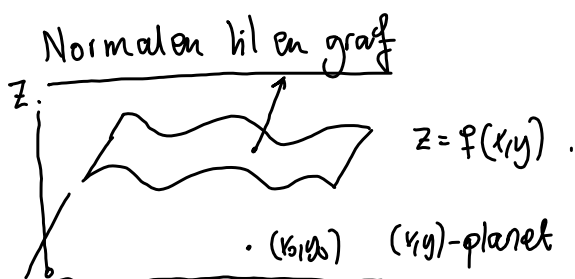 Normalen til en graf
z
z = f(x,y)
(x₀,y₀) (x,y)-planet